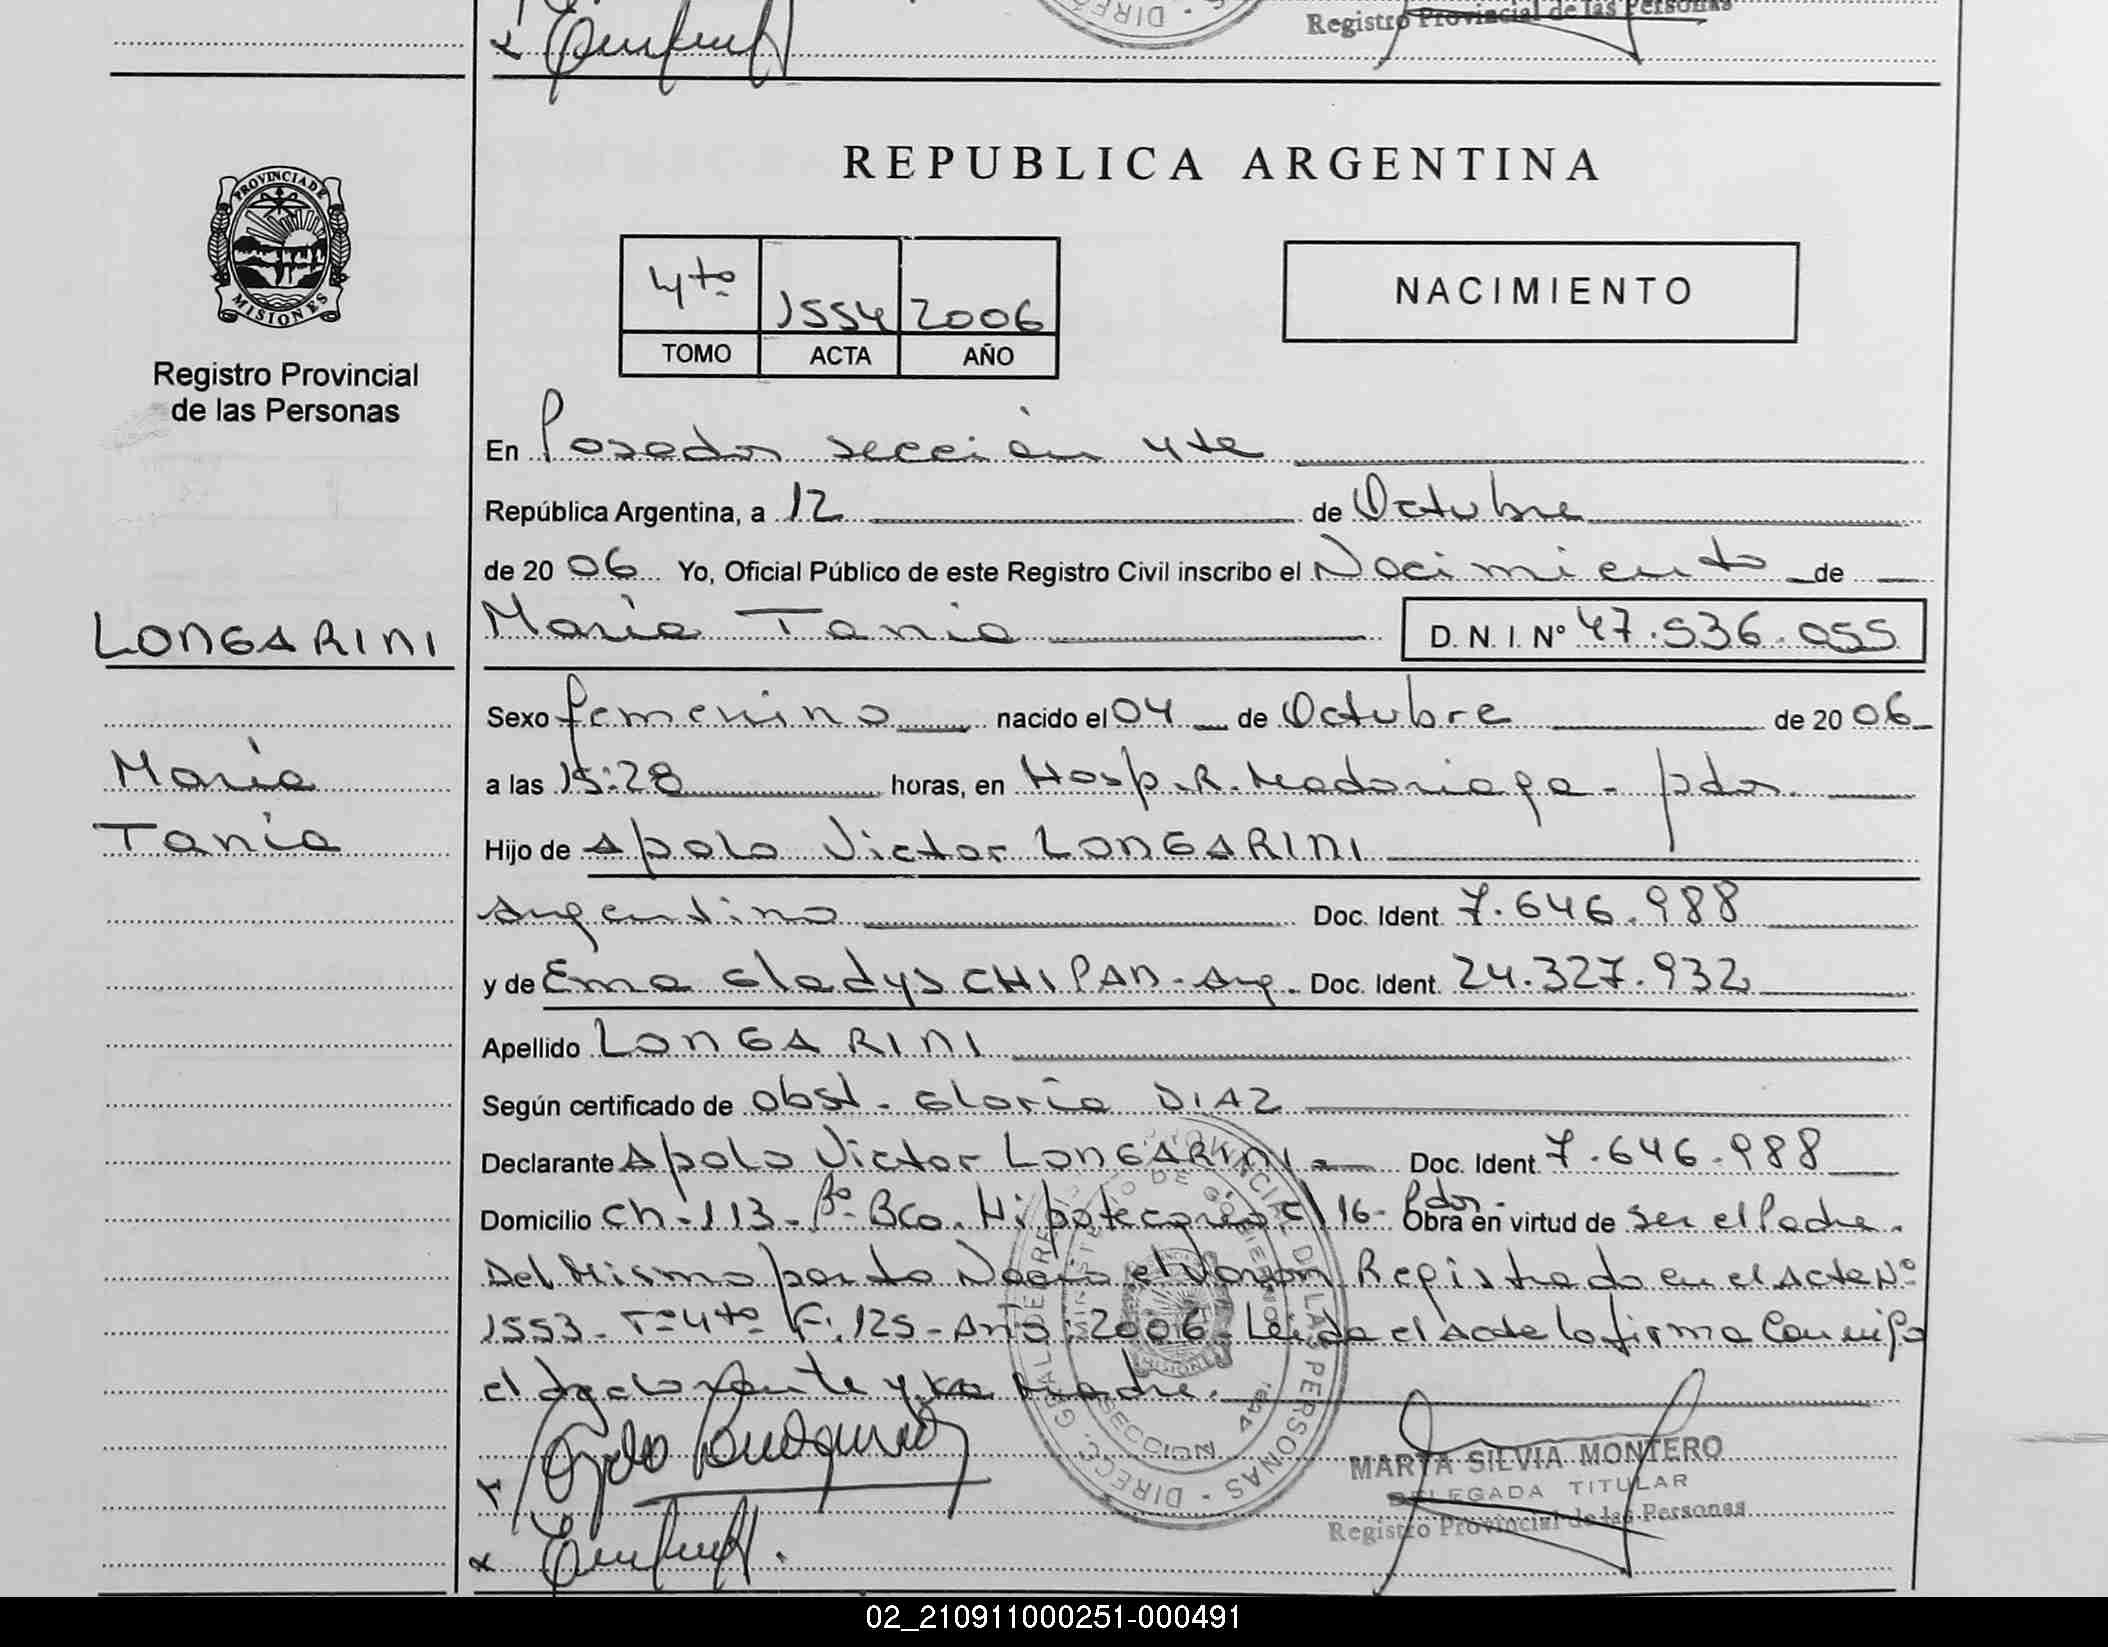 DIREC
Registro Provincial de las Personas
PROVINCIA DE
MISIONES
Registro Provincial
de las Personas
REPUBLICA ARGENTINA
4to 1554 2006
TOMO ACTA AÑO
NACIMIENTO
En Posadas sección 4ta
República Argentina, a 12 de Octubre
de 2006 Yo, Oficial Público de este Registro Civil inscribo el Nacimiento de
LONGARINI
María Tania D.N.I. Nº 47.536.055
Sexo femenino nacido el 04 de Octubre de 2006
María
a las 15:28 horas, en Hosp. R. Madariaga - pdas.
Tania
Hijo de Apolo Victor LONGARINI
Argentino Doc. Ident. 7.646.988
y de Ema Gladys CHIPAN - Arg. Doc. Ident. 24.327.932
Apellido LONGARINI
Según certificado de obst. Gloria DIAZ
Declarante Apolo Victor LONGARINI Doc. Ident. 7.646.988
Domicilio Ch-113-Bº-Bco. Hipotecario c/16-Pdas. Obra en virtud de ser el Padre.
Del Mismo parto Nació el Varón Registrado en el Acta Nº
1553-Tº4to-F:125-Año:2006. Leída el Acta la firma conmigo
el declarante y la madre.
MARTA SILVIA MONTERO
DELEGADA TITULAR
Registro Provincial de las Personas
SECCION 4ta
02_210911000251-000491